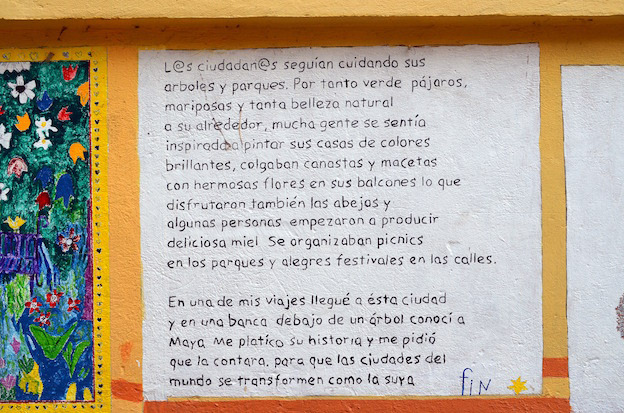 L@s ciudadan@s seguían cuidando sus
arboles y parques. Por tanto verde pájaros,
mariposas y tanta belleza natural
a su alrededor, mucha gente se sentía
inspirada a pintar sus casas de colores
brillantes, colgaban canastas y macetas
con hermosas flores en sus balcones lo que
disfrutaron también las abejas y
algunas personas empezaron a producir
deliciosa miel Se organizaban picnics
en los parques y alegres festivales en las calles.
En una de mis viajes llegué a ésta ciudad
y en una banca debajo de un árbol conocí a
Maya Me platico su historia y me pidió
que la contara, para que las ciudades del
mundo se transformen como la suya
fin